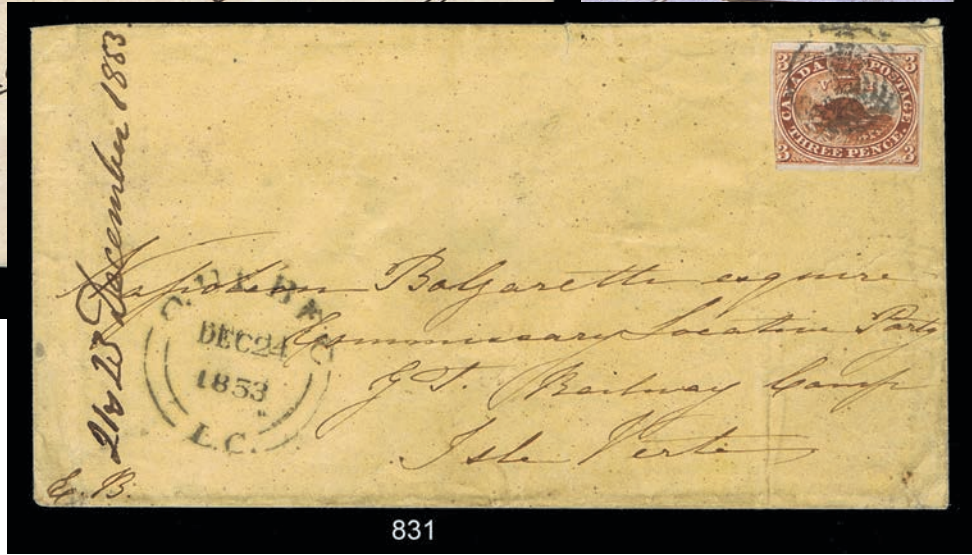 21 & 23 December 1853
3 CANADA POSTAGE 3
3 THREE PENCE 3
Napoleon Bolgaretti esquire
Commissary Locative Party
G T. Railway Camp
Isle Verte
QUEBEC
DEC 24
1853
L.C.
E. B.
831